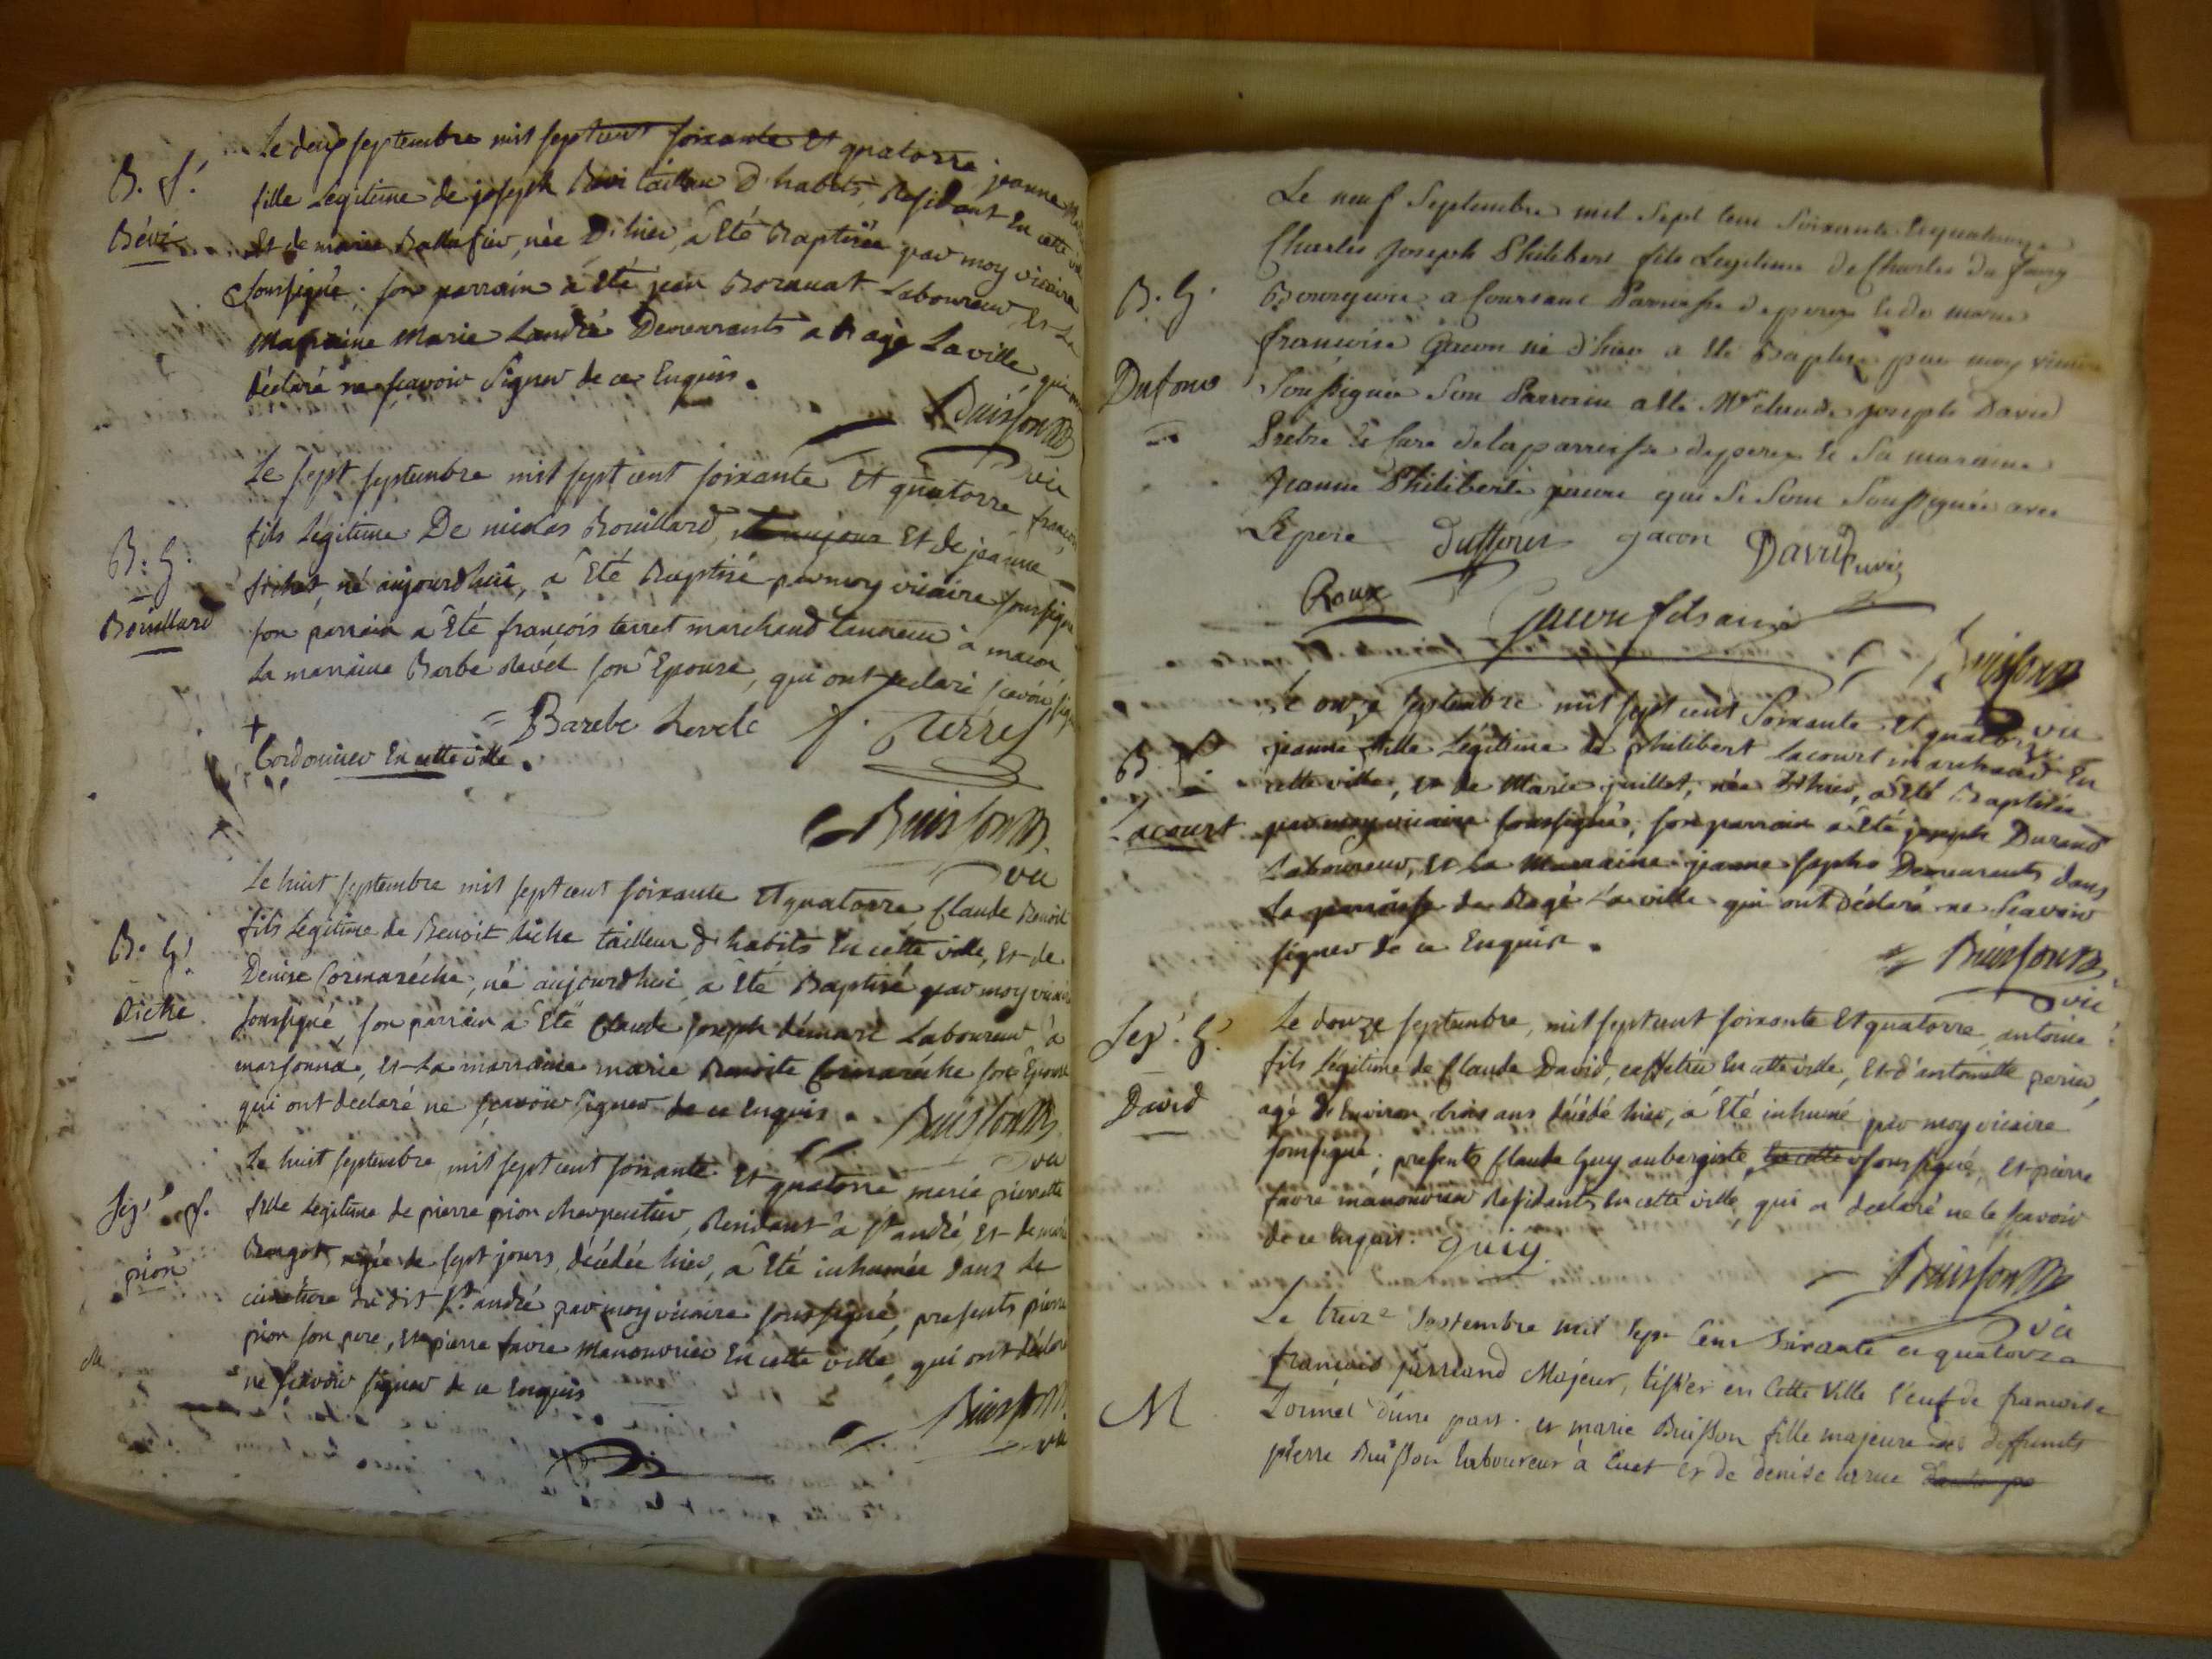 B. f.
Bévi
Le deux septembre mil sept cent soixante Et quatorze jeanne
fille Légitime de joseph Bévi tailleur D'habits, Residant En cette
Et de marie née D'hier, a Eté Baptisée par moy vicaire
soussigné; son parrain a Eté jean Laboureur, Et La
marraine Marie Landré Demeurants a Bagé La ville, qui
déclaré ne sçavoir signer de ce Enquis.
Buisson
vic
B. G.
Bouillard
Le sept septembre mil sept cent soixante Et quatorze, françois
fils Légitime De nicolas Bouillard, Et de jeanne
né aujourdhui, a Eté Baptisé par moy vicaire soussigné
son parrain a Eté françois terret marchand tanneur a macon
La marraine Barbe son Epouse, qui ont declaré sçavoir
= Barebe f.
+
Cordonnier En cette ville.
Buisson
vic
B. G.
diche
Le huit septembre mil sept cent soixante Et quatorze, Claude Benoit
fils Légitime de Benoit diche tailleur d'habits En cette ville, Et de
Denise Cormaréche, né aujourdhui, a Eté Baptisé par moy vicaire
soussigné, son parrain a Eté Claude joseph Laboureur, à
marsonna, Et La marraine marie Benoite Cormaréche son Epouse
qui ont declaré ne sçavoir signer de ce Enquis.
Buisson
vic
Sep. f.
pion
Le huit septembre mil sept cent soixante Et quatorze marie pierrette
fille Légitime de pierre pion charpentier, Residant à St andré, Et de marie
agée de sept jours, décédée hier, a Eté inhumée dans le
cimetiere du dit St andré par moy vicaire soussigné, presents pierre
pion son pere, Et pierre favre manouvrier En cette ville, qui ont déclaré
ne sçavoir signer de ce Enquis
M
Buisson
vic
B. G.
Dufour
Le neuf Septembre mil Sept Cent Soixante Et quatorze
Charles Joseph Philibert fils Legitime de Charles du four
Bourgeois a Paroisse de perex et de marie
francoise Gacon né d'hier a Eté Baptisé par moy vicaire
Soussigné Son Parrain a Eté Mre claude joseph David
Pretre et Curé de la parroisse de perex et Sa maraine
Jeanne Philiberte qui Se Sont Soussignés avec
Le pere Duffour gacon David
Roux
Gacon fils ainé
Buisson
vic
B. f.
Lacourt
Le onze septembre mil sept cent Soixante Et quatorze
jeanne fille Légitime de philibert Lacourt marchand En
cette ville, et de Marie juillet, née D'hier, a Eté Baptisée
par moy vicaire soussigné; son parrain a Eté joseph Durand
Laboureur, et La Marraine jeanne Demeurants dans
La paroisse de Bagé La ville qui ont Déclaré ne Sçavoir
signer de ce Enquis.
Buisson
vic
Sep. G.
David
Le douze septembre, mil sept cent soixante Et quatorze, antoine
fils Légitime de Claude David, En cette ville, Et d'antoinette perier,
agé d'Environ trois ans décédé hier, a Eté inhumé par moy vicaire
soussigné; presents Claude Guy aubergiste, soussigné, Et pierre
favre manouvrier Residants En cette ville, qui a declaré ne le sçavoir
de ce Enquis. guiy
Buisson
vic
M
Le treize Septembre mil Sept Cent Soixante et quatorze
françois Majeur, tissier en Cette Ville Veuf de francoise
d'une part. et marie Buisson fille majeure des deffunts
pierre Buisson laboureur à Cuet et de denise